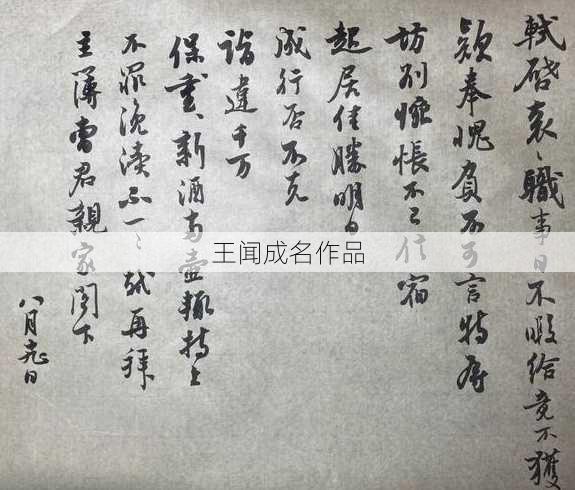 軾啓袞〻職事日不暇給竟不獲
欵奉愧負不可言特辱
訪別惋悵不已信宿
起居佳勝明日
成行否不克
詣違千万
保重〻新酒两壺輒持上
不罪浼瀆不一〻軾再拜
主簿曹君親家閣下
八月九日
王闻成名作品